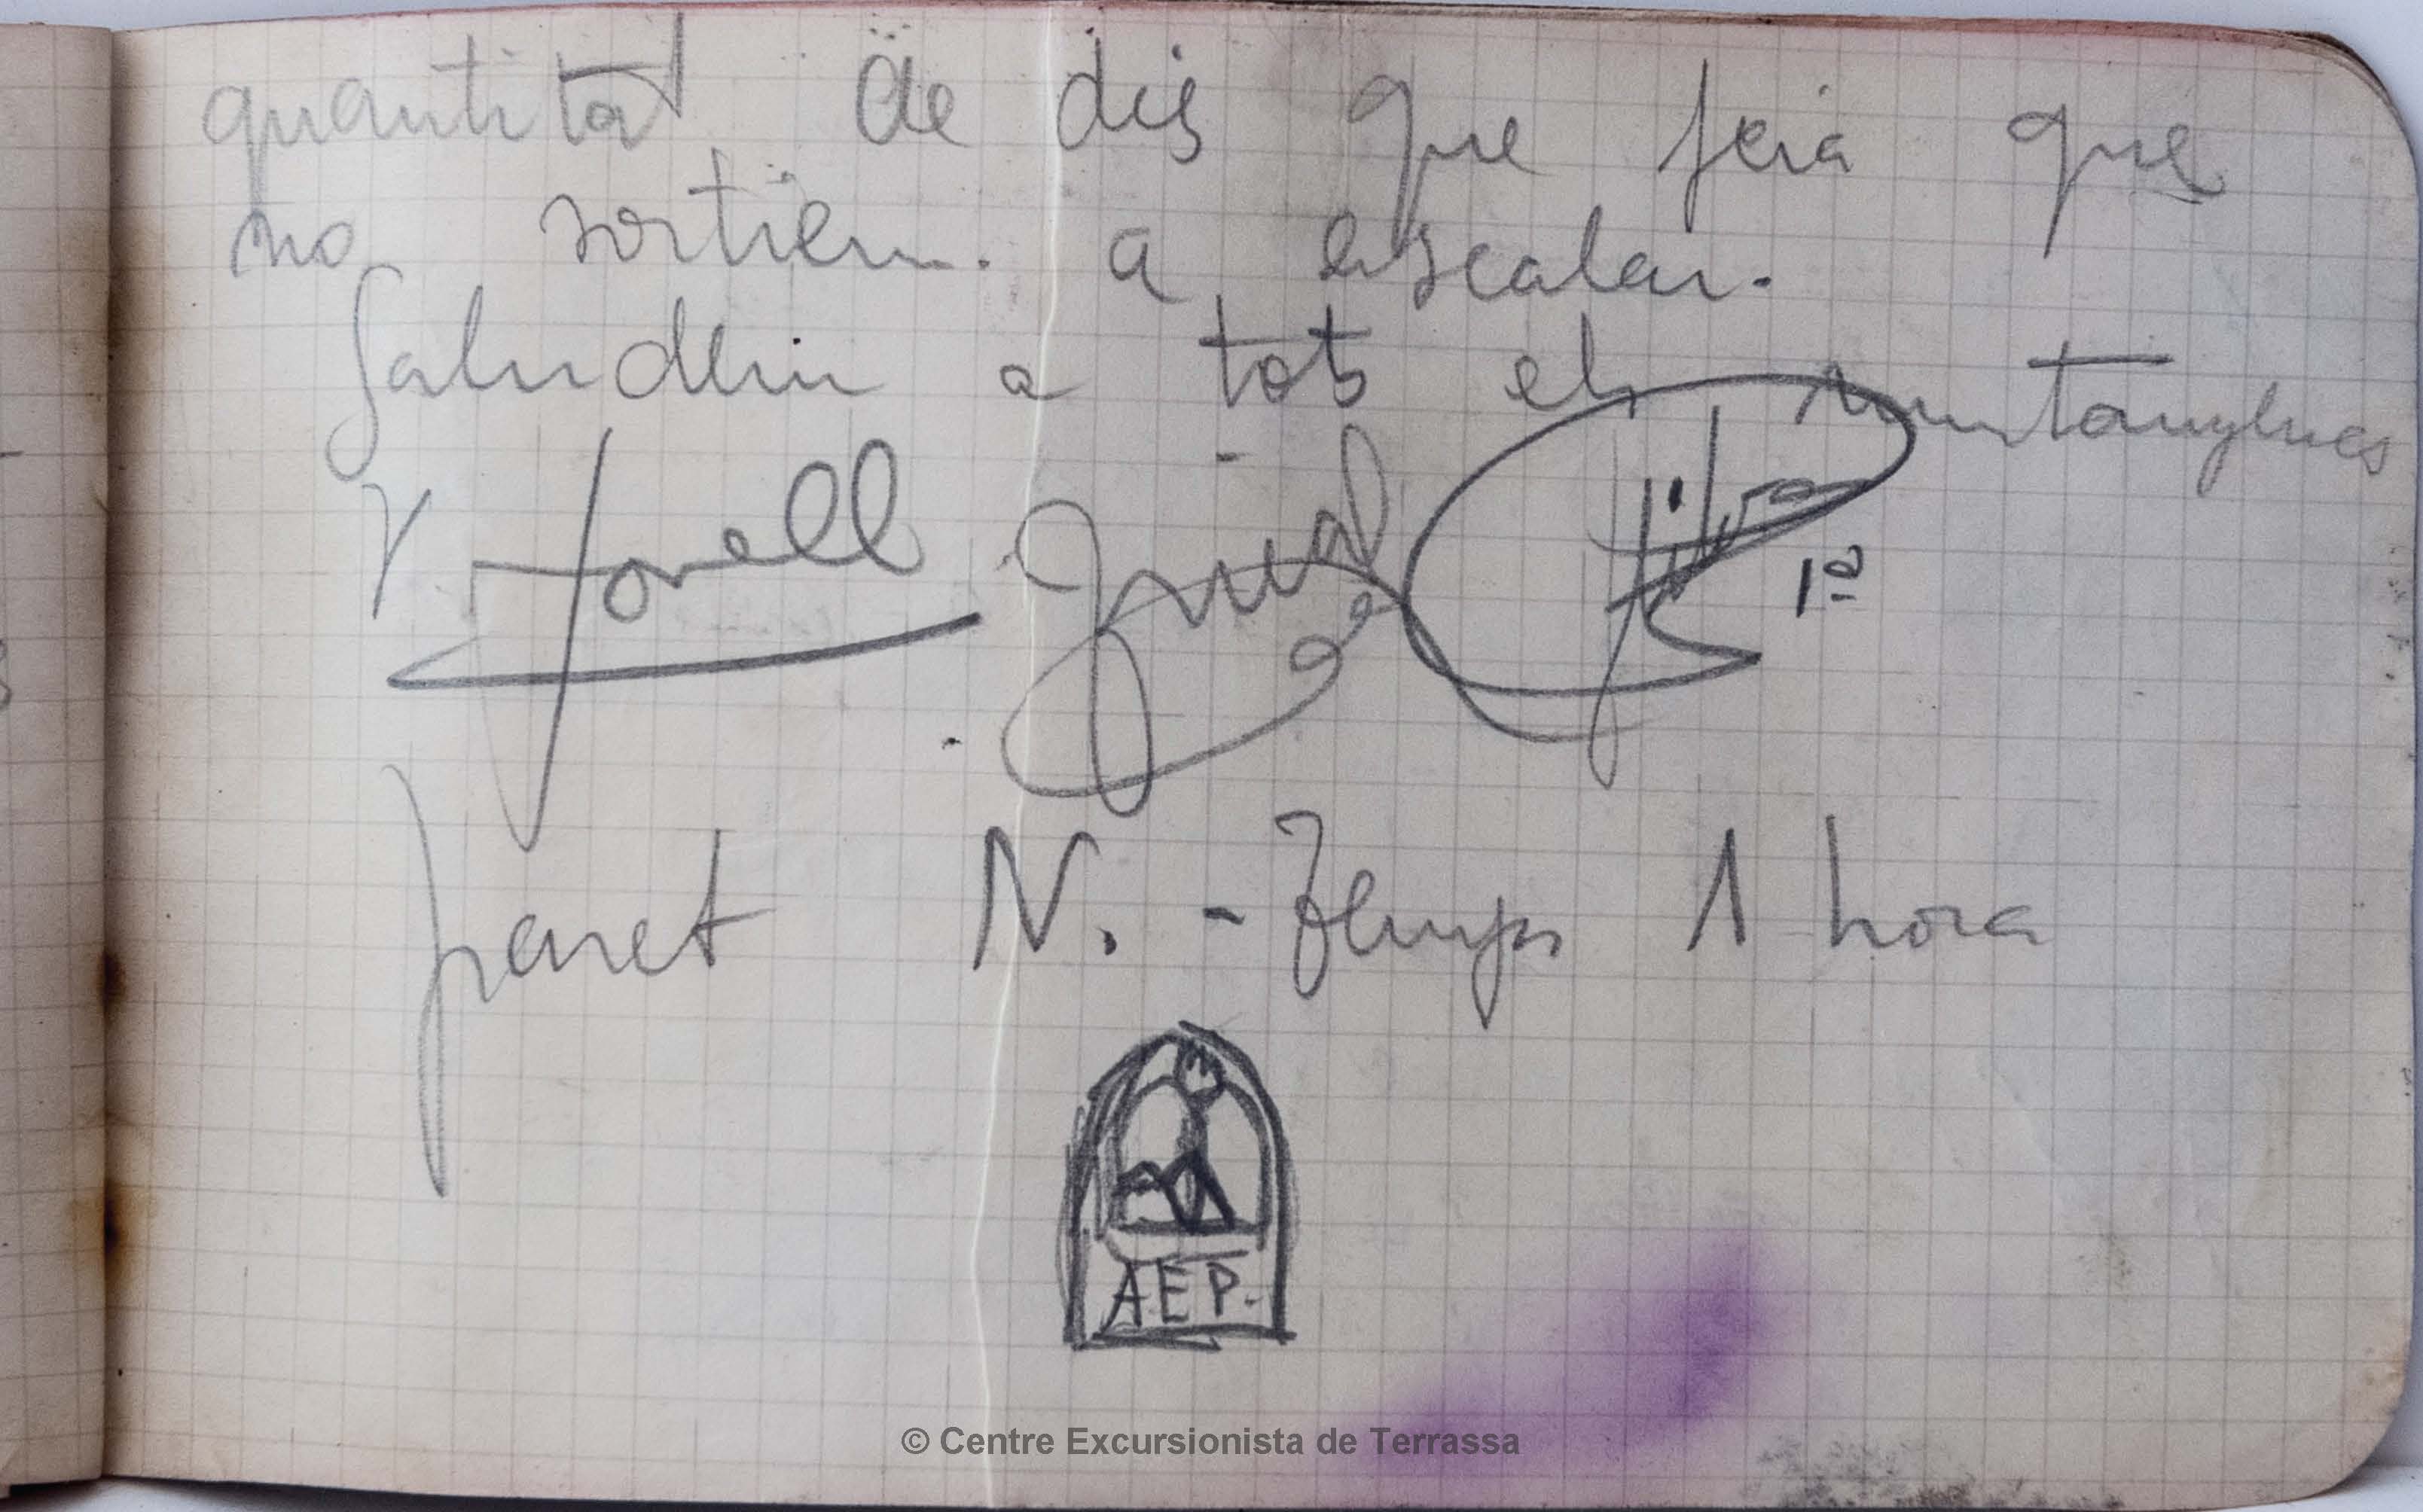 quantitat de dis que feia que
no sortiem. a escalar.
Saludem a tots els muntanyencs
Y Forell
1ª
paret N. - Temps 1 hora
A.E.P.
© Centre Excursionista de Terrassa